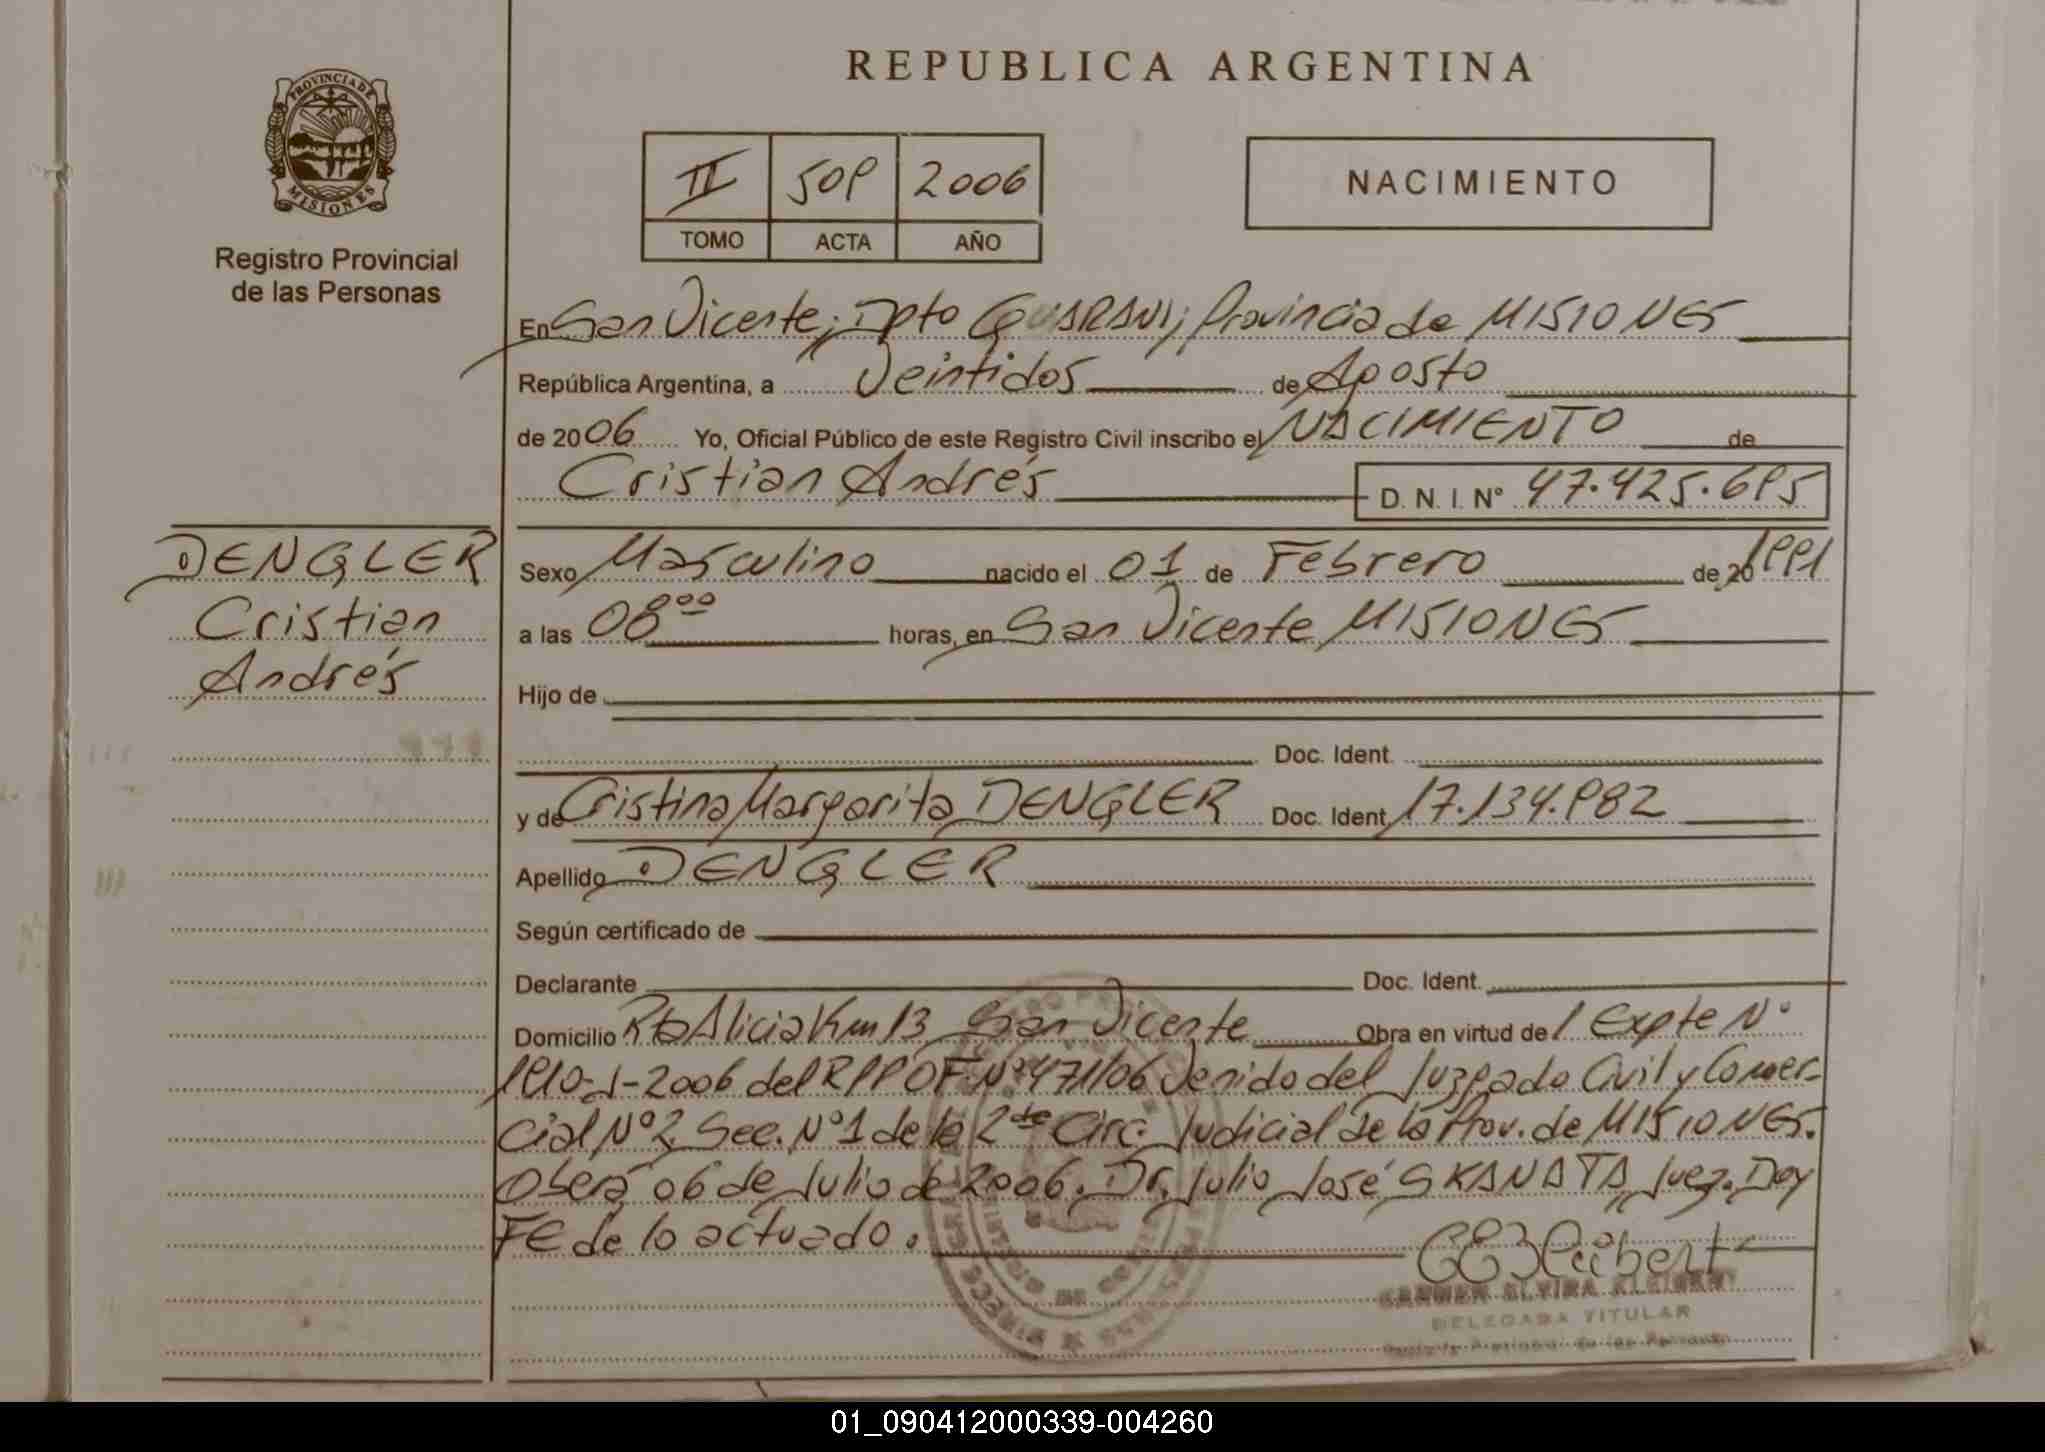 REPUBLICA ARGENTINA
PROVINCIA DE
MISIONES
Registro Provincial
de las Personas
II 509 2006
TOMO ACTA AÑO
NACIMIENTO
En San Vicente; Dpto GUARANI; Provincia de MISIONES
República Argentina, a Veintidos de Agosto
de 2006 Yo, Oficial Público de este Registro Civil inscribo el NACIMIENTO de
Cristian Andrés D. N. I. N° 47.425.695
DENGLER
Cristian
Andrés
Sexo Masculino nacido el 01 de Febrero de 20 1991
a las 08⁰⁰ horas, en San Vicente MISIONES
Hijo de
Doc. Ident.
y de Cristina Margarita DENGLER Doc. Ident. 17.134.982
Apellido DENGLER
Según certificado de
Declarante Doc. Ident.
Domicilio Rta Alicia Km 13 San Vicente Obra en virtud del Expte N°
1910-J-2006 del RPP OF Nº 471/06 Venido del Juzgado Civil y Comer-
cial Nº 2 Sec. Nº 1 de la 2da Circ. Judicial de la Prov. de MISIONES.
Oberá 06 de Julio de 2006. Dr. Julio José SKANATA Juez. Doy
FE de lo actuado.
CARMEN ELVIRA KLEIBERT
DELEGADA TITULAR
01_090412000339-004260